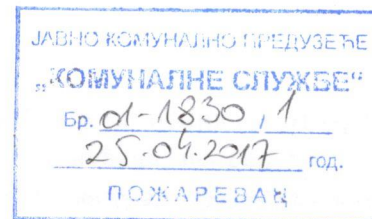 ЈАВНО КОМУНАЛНО ПРЕДУЗЕЋЕ
„КОМУНАЛНЕ СЛУЖБЕ“
Бр. 01-1830 / 1
25.04.2017 год.
ПОЖАРЕВАЦ